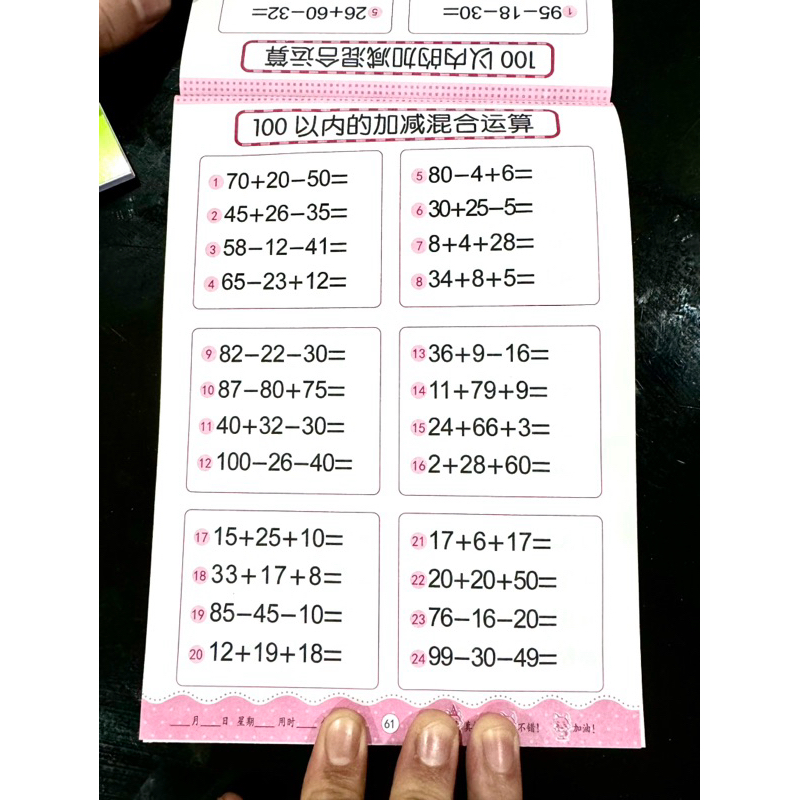 5 26+60−32=
1 95−18−30=
100 以内的加减混合运算
100 以内的加减混合运算
1 70+20−50=
2 45+26−35=
3 58−12−41=
4 65−23+12=
5 80−4+6=
6 30+25−5=
7 8+4+28=
8 34+8+5=
9 82−22−30=
10 87−80+75=
11 40+32−30=
12 100−26−40=
13 36+9−16=
14 11+79+9=
15 24+66+3=
16 2+28+60=
17 15+25+10=
18 33+17+8=
19 85−45−10=
20 12+19+18=
21 17+6+17=
22 20+20+50=
23 76−16−20=
24 99−30−49=
___月___日 星期___ 用时___ 61 不错! 加油!